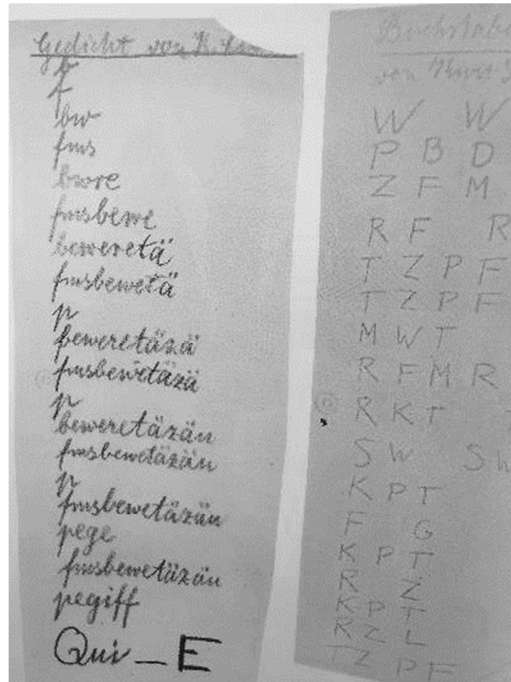 Gedicht von K.
b
f
bw
fms
bwre
fmsbewe
beweretä
fmsbewetä
p
beweretäzä
fmsbewetäzä
p
beweretäzän
fmsbewetäzän
p
fmsbewetäzän
pege
fmsbewetäzän
pegiff
Qui _ E
Buchstabe
von Kurt
W W
P B D
Z F M
R F R
T Z P F
T Z P F
M W T
R F M R
R K T
S W S W
K P T
F G
K P T
R Z
K P T
R Z L
T Z P F